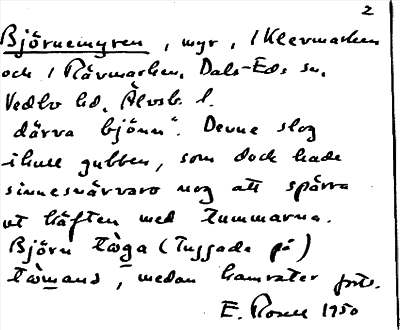 2
Björnemyren, myr, i Klevmarken
och i Rävmarken, Dals-Eds sn,
Vedbo hd, Älvsb. l.
därva björnn". Denne slog
ihull gubben, som dock hade
sinnesnärvaro nog att spärra
ut käften med tummarna.
Björn tåga (Tuggade på)
, medan kamrater forts.
E. Rosell 1950